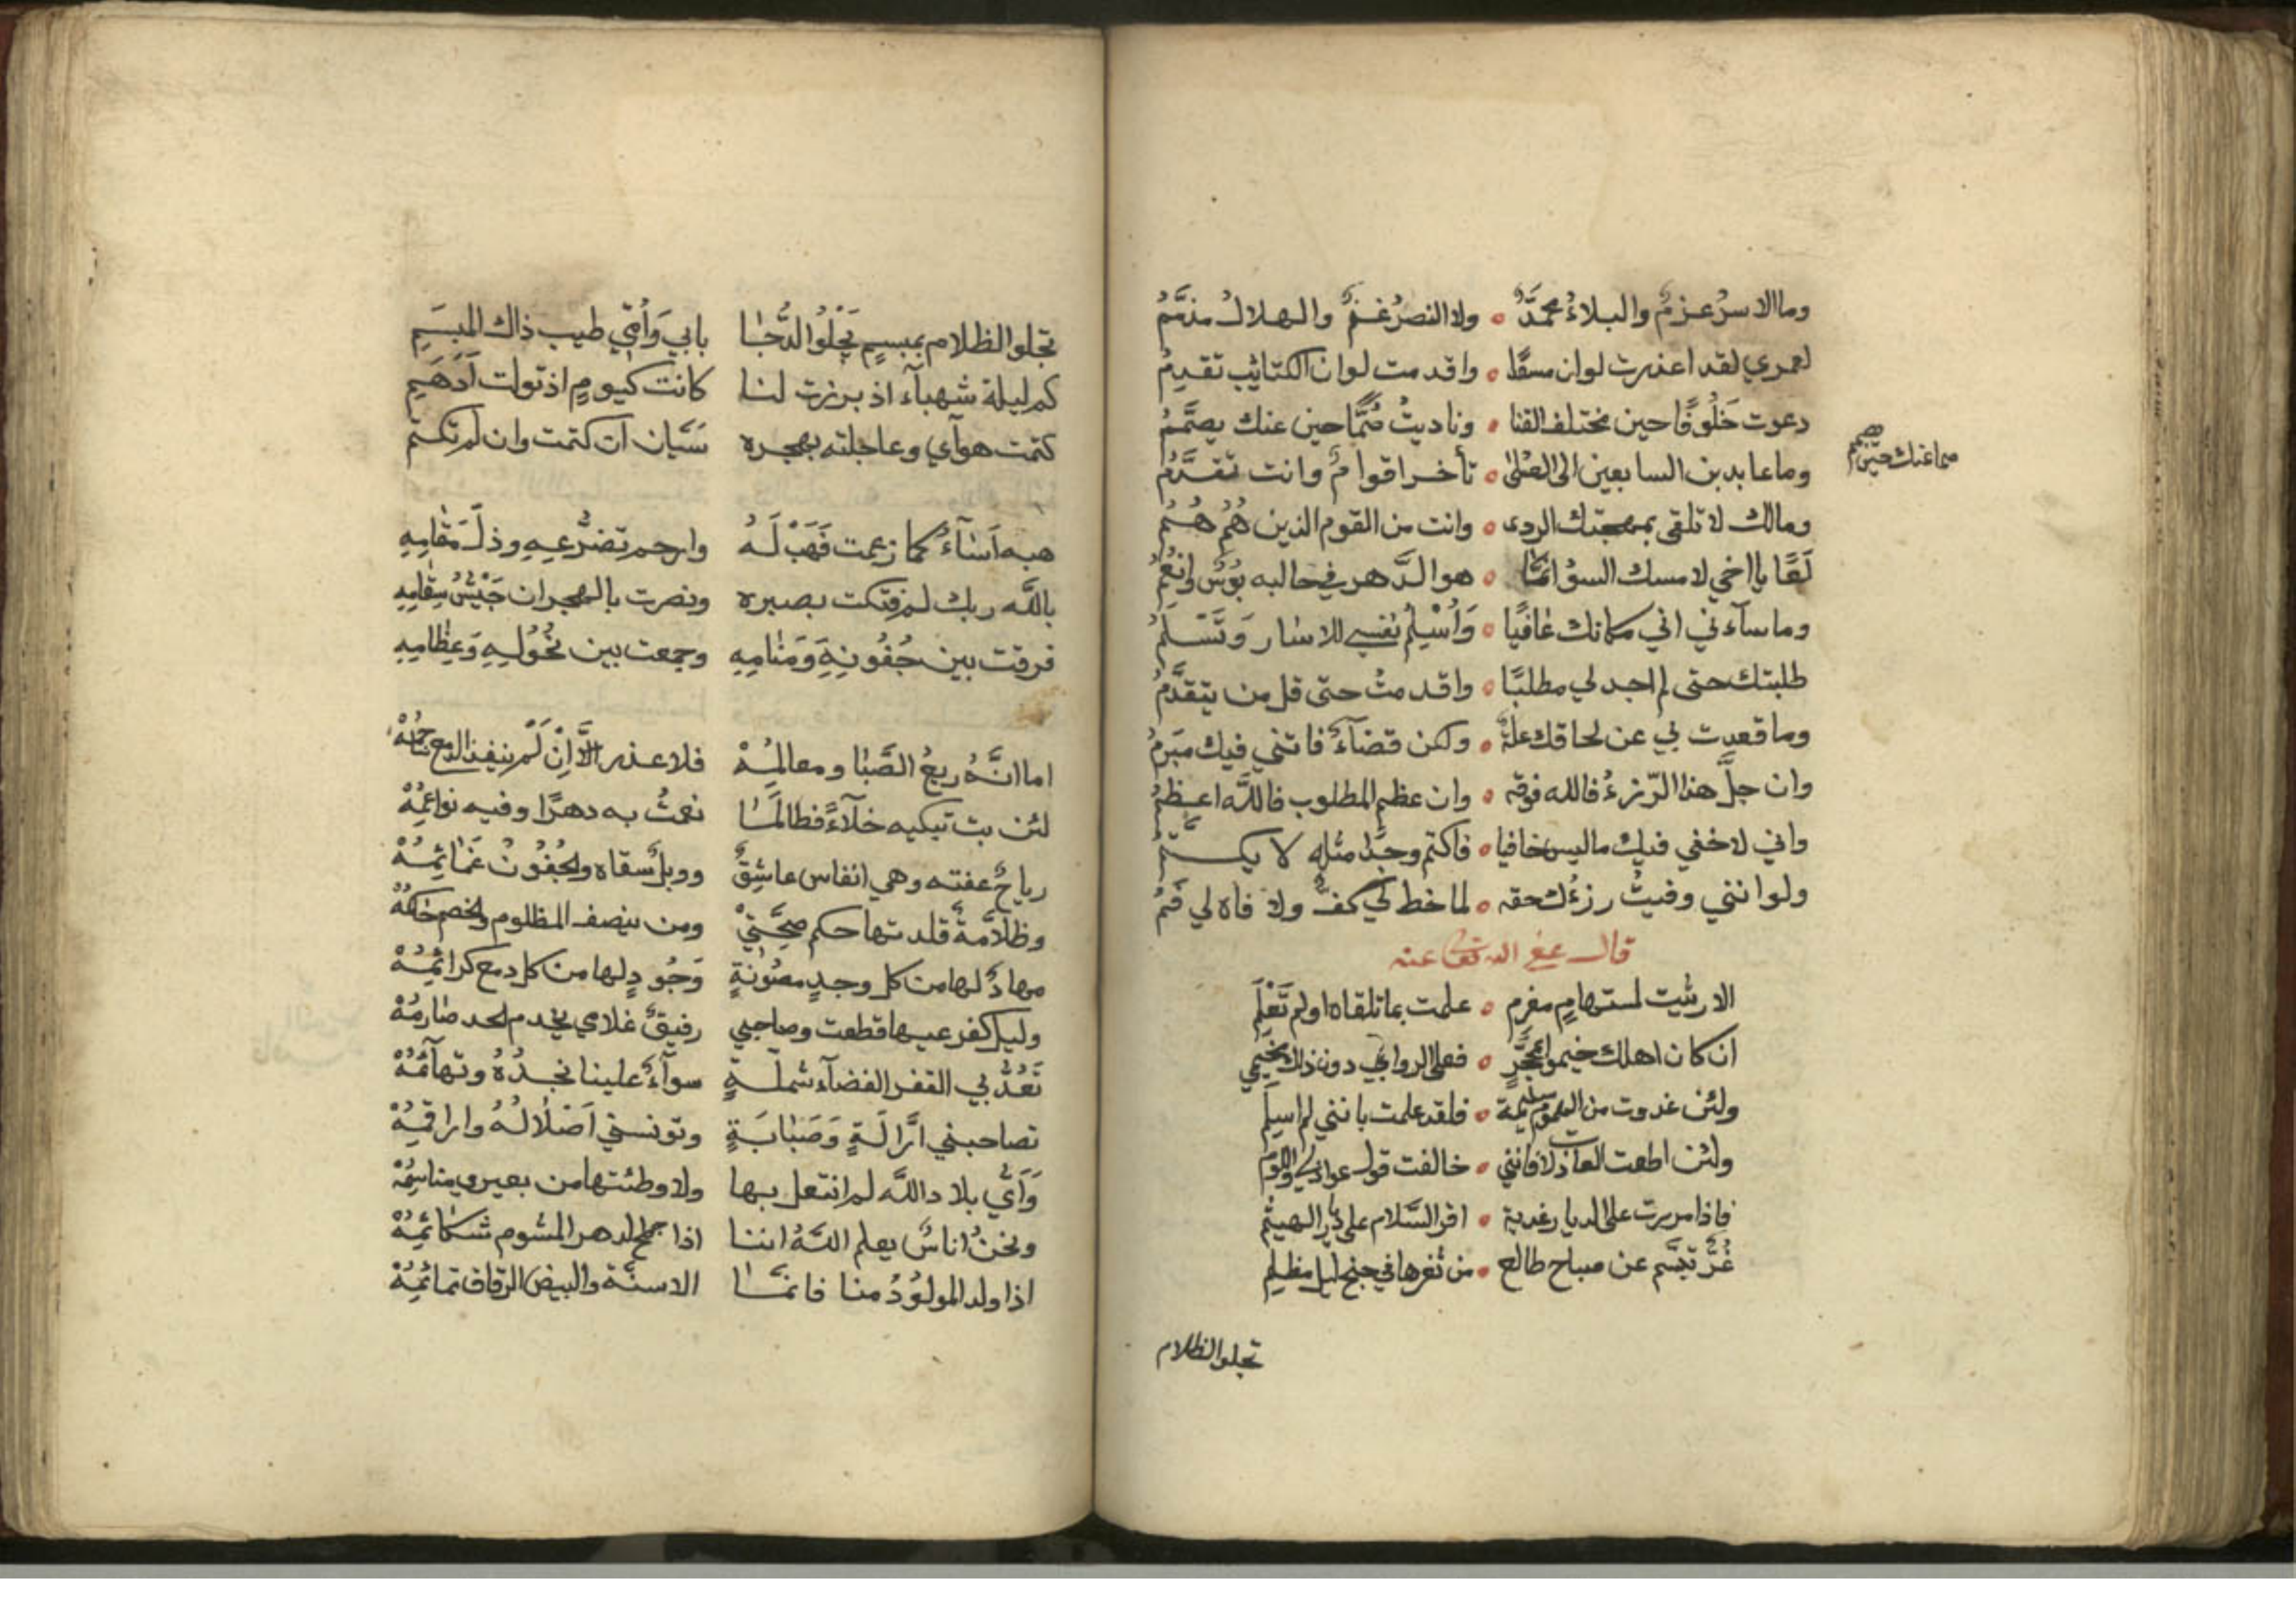 وما الاسر عزمٌ والبلاءُ محمدٌ ولا النصرُ غنمٌ والهلاك مذممُ
لعمري لقد اعذرت لوان مسعًا واقدمت لوان الكتائب تقدمُ
دعوت خَلُوفًا حين مختلف القنا وناديتُ صُمًّا حين عنك يصمَّمُ
صما عنك حين صمم
وما عابد بن السابعين الى العُلىٰ تأخر اقوامٌ وانت تقدَّمُ
ومالك لا تلقى بمهجتك الردى وانت من القوم الذين هُمُ هُمُ
لَعًا يا اخي لا مسك السؤ انما هو الدَّهر في حاليه بؤسٌ وانعُمُ
وما سآءني اني مكانك عافيًا وَأُسْلِمُ نفسي للاسار وَتَسْلَمُ
طلبتك حتى لم اجد لي مطلبًا واقدمتُ حتى قل من يتقدَّمُ
وما قعدت بي عن لحاقك علةٌ ولكن قضآءٌ فاتني فيك مبرمُ
وان جلَّ هذا الرّزءُ فالله فوقه وان عظم المطلوب فاللّه اعظمُ
واني لاخفي فيك ما ليس خافيا فاكتم وجدًا مثلهِ لا يكتمُ
ولو انني وفيتُ رزءُك حقه لما خط لي كفٌّ ولا فاه لي فَمُ
قال عفي الله تعالى عنه
الا رثيت لمستهامٍ مغرم علمت بما تلقاه او لم تَعْلَمِ
ان كان اهلك خيموا بمحجَّرٍ فعلى الروابي دون ذلك مخيمي
ولئن غدوت من الهموم سليمة فلقد علمت بانني لم اسلم
ولئن اطعت العاذلات فانني خالفت قول عواذلي واللوم
فاذا مررت على الديار غدية اقر السَّلام على ديار الهيثم
غُرٌّ تبسَّم عن صباح طالع من ثغرها في جنح ليل مظلم
تجلو الظلام
تجلو الظلام بمبسمٍ يَجْلُوُ الدُّجَا بابي وَاُمّي طيب ذاك المبسَمِ
كم ليلة شهبآء اذ برزت لنا كانت كيومٍ اذ تولت اَدْهَمِ
كتمت هوآي وعاجلته بهجره سَيَّان ان كتمت وان لم تكتم
هبه اَسَآءَ كما زعمت فَهَبْ لَهُ وارحم تضرُّعِهِ وذلَّ مَقَامِهِ
باللّه ربك لم فتكت بصبره ونصرت بالهجران جَيْشُ سِقَامِهِ
فرقت بين جُفُونِهِ وَمَنَامِهِ وجمعت بين نُحُولِهِ وَعِظَامِهِ
اما انَّهُ ربعُ الصَّبَا ومعالمُهْ فلا عذر الَّا اِنْ لَمْ ينفذ الدمع ساجمُهْ
لئن بت تبكيه خلآءً فطالمَا نعمتُ به دهرًا وفيه نواعمُهْ
رياحٌ عفته وهي انفاس عاشقٍ ووبلٌ سقاه والجُفُونُ غَمَائِمُهْ
وظلَّامَةٌ قلدتها حكم مهجتي ومن ينصف المظلوم والخصم حاكمُهْ
مهادٌ لها من كل وجدٍ مصُونةٍ وَجُودٍ لها من كل دمع كرائمُهْ
وليل كفر عيبها قطعت وصاحبي رفيقٌ غلامي مخذم الحد صارمُهْ
تَعُدُّ بي القفر الفضآء شملّةٍ سوآءٌ علينا نجدُهُ وتهآئمُهْ
تصاحبني ارَّالَةٍ وَصَبَابَةٍ وتونسني اَصْلَالُهُ واراقمُهْ
وَاَيُّ بلاد اللَّه لم انتعل بها ولا وطئتها من بعيري مناسمُهْ
ونحنُ اناسٌ يعلم اللَّهُ اننا اذا جمح الدهر المشوم شكائمُهْ
اذا ولد المولوُدُ منا فانما الاسنَّة والبيض الرقاق تمائمُهْ